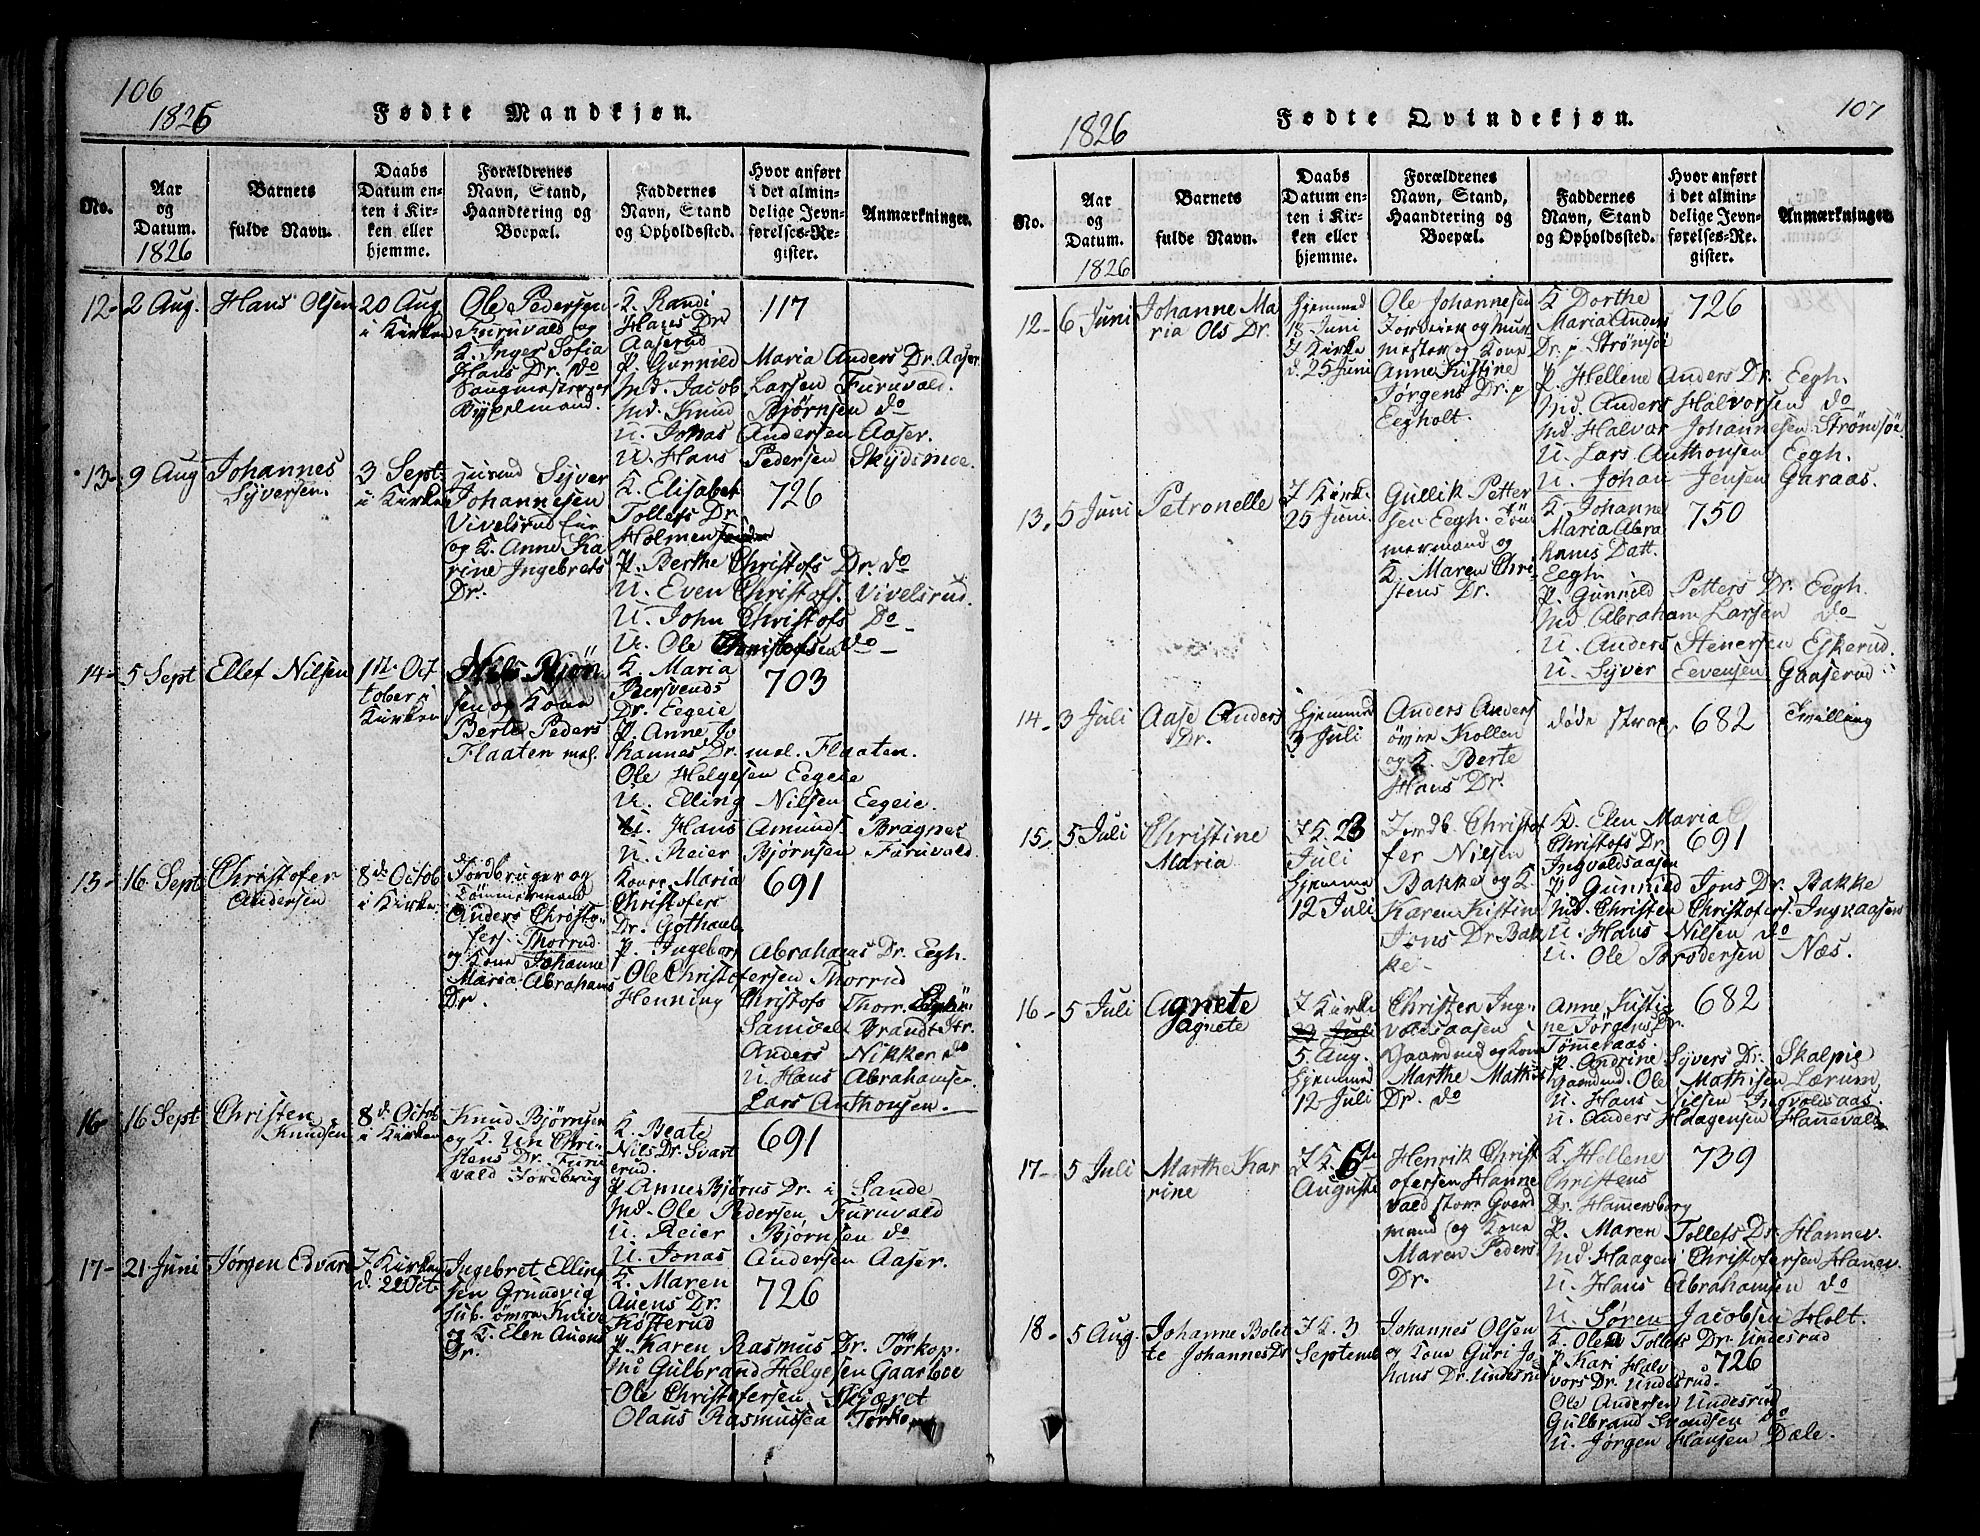 106
1826
Fødte Mandkjøn.
No.
Aar
og
Datum.
1826
Barnets
fulde Navn.
Daabs
Datum en-
ten i Kir-
ken eller
hjemme.
Forældrenes
Navn, Stand,
Haandtering og
Boepæl.
Faddernes
Navn, Stand
og Opholdssted.
Hvor anført
i det almin-
delige Jevn-
førelses-Re-
gister.
Anmærkninger.
12-
2 Aug.
Hans Olsen
20 Aug
i Kirken
Ole Pedersen
Furuvald og
K. Inger Sofia
Hans Dr. do
K. Randi
Hans Dr
Aaserud
P. Gunnild Maria Anders Dr. Aaser.
Md. Jacob Larsen Furuvald.
Md. Knud Bjørnsen do
U. Jonas Andersen Aaser.
U. Hans Pedersen Skydsmoe.
117
13-
9 Aug
Johannes
Syversen.
3 Sept.
i Kirken
Syver
Johannesen
Vivelsrud
og K. Anne Ka
rine Ingebrets
Dr.
K. Elisabet
Tollefs Dr.
Holmen
P. Berthe Christofs Dr. do
U. Even Christofs. Vivelsrud.
U. John Christofs Do
U. Ole Christofsen do
726
14-
5 Sept
Ellef Nilsen
1ste Oct
tober i
Kirken
Nils Bjørn
sen og Kone
Berte Peders
Flaaten
K. Maria
Bersvends
Dr. Eegeie
P. Anne Jo
hannes Dr. Flaaten.
Ole Helgesen Eegeie
U. Elling Nilsen Eegeie.
U. Hans Amunds. Bragnes
U. Reier Bjørnsen Furuvald.
703
13-
16 Sept
Christofer
Andersen
8de Octob
i Kirke
Jordbruger og
Tømmermand
Anders Christo-
fers. Thorrud
og Kone Johanne
Maria Abrahams
Dr.
Kone Maria
Christofers
Dr. Gothaab
P. Ingeborg Abrahams Dr. Eegh.
Ole Christofersen Thorrud
Henning Christofs Thorr.
Samvelt Brandt Str.
Anders Nikker do
U. Hans Abrahamsen
Lars Anthonsen.
691
16-
16 Sept
Christen
Knudsen
8de Octob
i Kirken
Knud Bjørnsen
og K. Chri-
stens Dr. Furu
vald Jordbrug
K. Beate
Nils Dr. Svart
erud.
P. Anne Bjørns Dr. i Sande
Md. Ole Pedersen Furuvald
U. Reier Bjørnsen do
U. Jonas Andersen Aaser.
691
17-
21 Juni
Jørgen Edvard
I Kirken
d. 22 Oct
Ingebret Elling
sen Grundvig
og K. Elen Auens
Dr.
K. Maren
Auens Dr.
Kotterud
P. Karen Rasmus Dr. Tørkop.
Md Gulbrand Helgesen Gaarboe
Ole Christofersen Skjæret
Olaus Rasmussen Tørkop
726
107
1826
Fødte Qvindekjøn.
No.
Aar
og
Datum.
1826
Barnets
fulde Navn.
Daabs
Datum en-
ten i Kir-
ken eller
hjemme.
Forældrenes
Navn, Stand,
Haandtering og
Boepæl.
Faddernes
Navn, Stand
og Opholdssted.
Hvor anført
i det almin-
delige Jevn-
førelses-Re-
gister.
Anmærkninger.
12-
6 Juni
Johanne Ma
ria Ols Dr.
Hjemmed
18 Juni
I Kirke
d. 25 Juni
Ole Johannesen
mester og Kone
Anne Kistine
Jørgens Dr. p
Eegholt.
K Dorthe
Maria Anders
Dr. p Strømsøe
P. Hellene Anders Dr. Eegh.
Md. Anders Halvorsen do
Md Halvor Johannesen Strømsøe
U. Lars Anthonsen Eegh.
U. Johan Jensen Garaas.
726
13.
5 Juni
Petronelle
I Kirk.
25 Juni.
Gullik Petter
sen Eegh. Tøm
mermand og
K. Maren Chri-
stens Dr.
K. Johanne
Maria Abra
hams Datt.
Eegh
P. Gunnild Petters Dr. Eegh.
Md Abraham Larsen do
U. Anders Stenersen Eskerud.
U. Syver Eevensen Gaaserud
750
14-
3 Juli
Aase Anders
Dr.
Hjemmed
3 Juli
Anders Anders
øvre Kollen
og K. Berte
Hans Dr.
døde strax
682
Tvilling
15-
5 Juli
Christine
Maria
I K. 23
Juli
Hjemme
12 Juli
Jordb. Christof
fer Nilsen
Bakke og K
Karen Kistine
Jons Dr Bak
ke-
K. Elen Maria
Christofs Dr.
Ingvaldsaasen
P. Gunnild Jons Dr. Bakke
Md. Christen Christofers. Ingvaasen
U. Hans Nilsen do
U. Ole Brodersen Næs.
691
16-
5 Juli
Agnete
Agnete
I Kirke
23 Juli
5. Aug.
Hjemmed
12 Juli
Christen Ing-
voldsaasen
Gaardmd og Kone
Marthe Mathis
Dr. do
Anne Kisti-
ne Jørgens Dr.
Tømmeraas.
P. Andrine Syvers Dr. Skalpie
Gaardmd. Ole Mathisen Lærum
U. Hans Nilsen Ingvoldsaas.
U. Anders Haagensen Hannevald
682
17-
5 Juli
Marthe Kar
rine
I K. 6te
Auguste
Henrik Christ
ofersen Hanne
vald store Gaard
mand og Kone
Maren Peders
Dr.
K. Hellene
Christens
Dr. Hammersborg
P. Maren Tollefs Dr. Hannev.
Md Haagen Christofersen Hannev.
U. Hans Abrahamsen do
U. Søren Jacobsen Holt.
739
18-
5 Aug.
Johanne Bolet
te Johannes Dr
I K. 3
Septemb
Johannes Olsen
og Kone Guri Jo
hans Dr. Undesrud
K. Olea Tollefs Dr. Undesrud
P Kari Halv
vors Dr. Undesrud.
Ole Andersen Undesrud
Gulbrand Svendsen do
U. Jørgen Hansen Dæle.
726